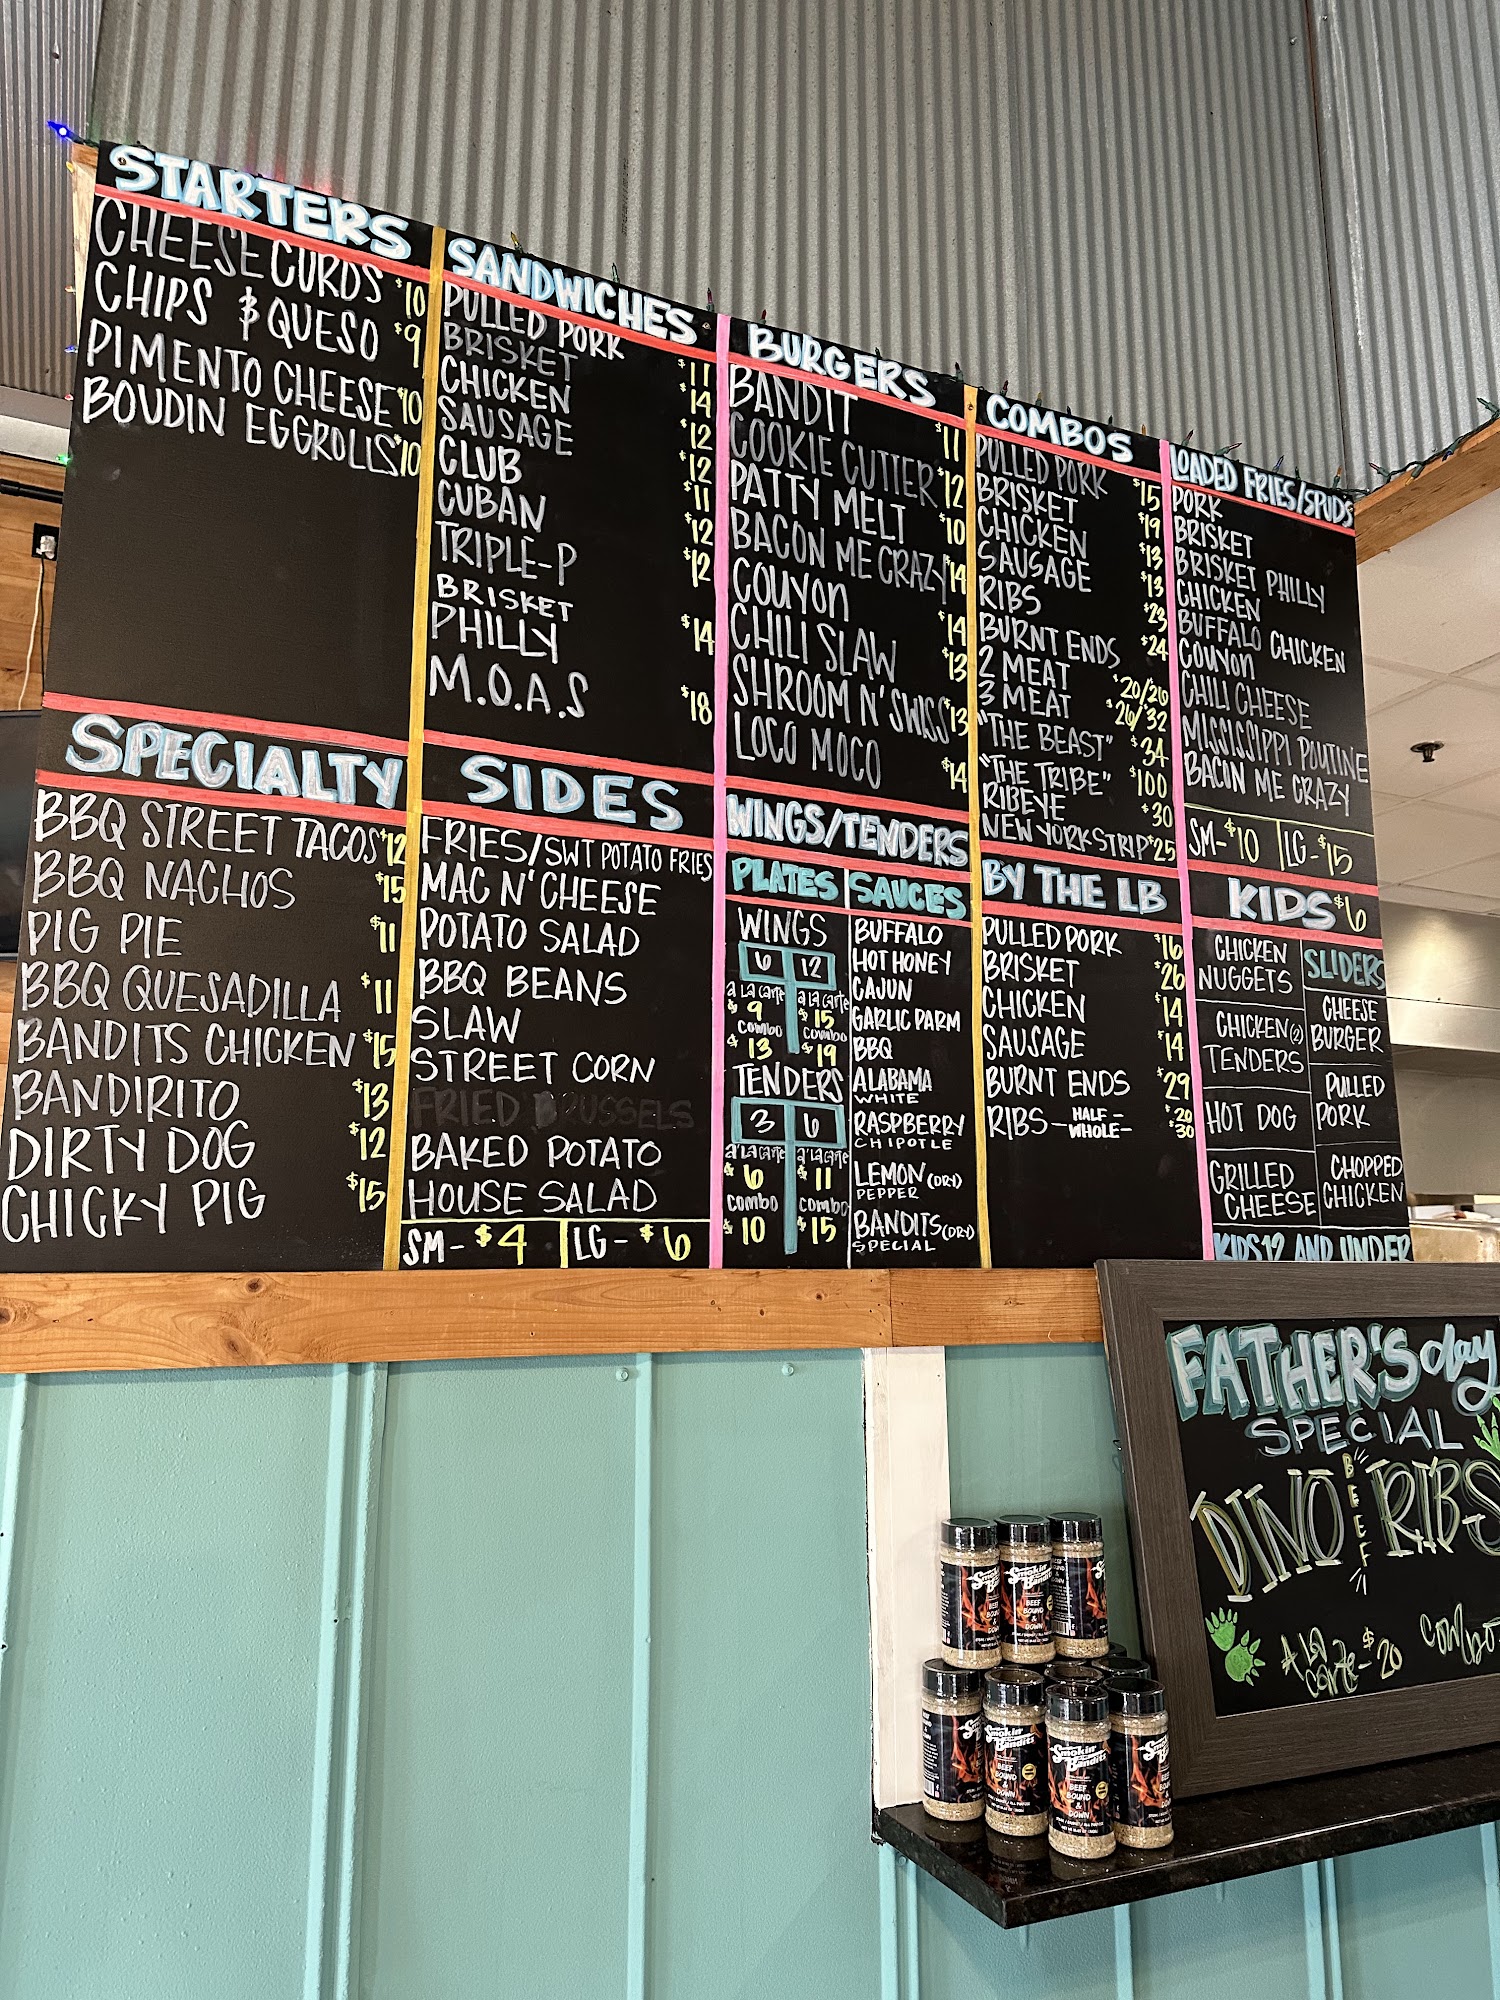 STARTERS
CHEESE CURDS $10
CHIPS & QUESO $9
PIMENTO CHEESE $10
BOUDIN EGGROLLS $10
SPECIALTY
BBQ STREET TACOS $12
BBQ NACHOS $15
PIG PIE $11
BBQ QUESADILLA $11
BANDITS CHICKEN $15
BANDIRITO $13
DIRTY DOG $12
CHICKY PIG $15
SANDWICHES
PULLED PORK $11
BRISKET $14
CHICKEN $12
SAUSAGE $12
CLUB $11
CUBAN $12
TRIPLE-P $12
BRISKET
PHILLY $14
M.O.A.S $18
SIDES
FRIES/SWT POTATO FRIES
MAC N' CHEESE
POTATO SALAD
BBQ BEANS
SLAW
STREET CORN
FRIED BRUSSELS
BAKED POTATO
HOUSE SALAD
SM - $4 LG - $6
BURGERS
BANDIT $11
COOKIE CUTTER $12
PATTY MELT $10
BACON ME CRAZY $14
COUYON $14
CHILI SLAW $13
SHROOM N' SWISS $13
LOCO MOCO $14
WINGS/TENDERS
PLATES
WINGS
6 12
a la carte a la carte
$9 $15
combo combo
$13 $19
TENDERS
3 6
a'la carte a'la carte
$6 $11
combo combo
$10 $15
SAUCES
BUFFALO
HOT HONEY
CAJUN
GARLIC PARM
BBQ
ALABAMA
WHITE
RASPBERRY
CHIPOTLE
LEMON (DRY)
PEPPER
BANDITS (DRY)
SPECIAL
COMBOS
PULLED PORK $15
BRISKET $19
CHICKEN $13
SAUSAGE $13
RIBS $23
BURNT ENDS $24
2 MEAT $20/26
3 MEAT $26/$32
"THE BEAST" $34
"THE TRIBE" $100
RIBEYE $30
NEW YORK STRIP $25
BY THE LB
PULLED PORK $16
BRISKET $26
CHICKEN $14
SAUSAGE $14
BURNT ENDS $29
RIBS - HALF - $20
WHOLE - $30
LOADED FRIES/SPUDS
PORK
BRISKET
BRISKET PHILLY
CHICKEN
BUFFALO CHICKEN
COUYON
CHILI CHEESE
MISSISSIPPI POUTINE
BACON ME CRAZY
SM - $10 LG - $15
KIDS $6
CHICKEN
NUGGETS
CHICKEN (2)
TENDERS
HOT DOG
GRILLED
CHEESE
SLIDERS
CHEESE
BURGER
PULLED
PORK
CHOPPED
CHICKEN
KIDS 12 AND UNDER
FATHER'S day
SPECIAL
DINO BEEF RIBS
A LA
CARTE - $20
COMBO
Smokin'
Bandits
BEEF
BOUND
&
DOWN